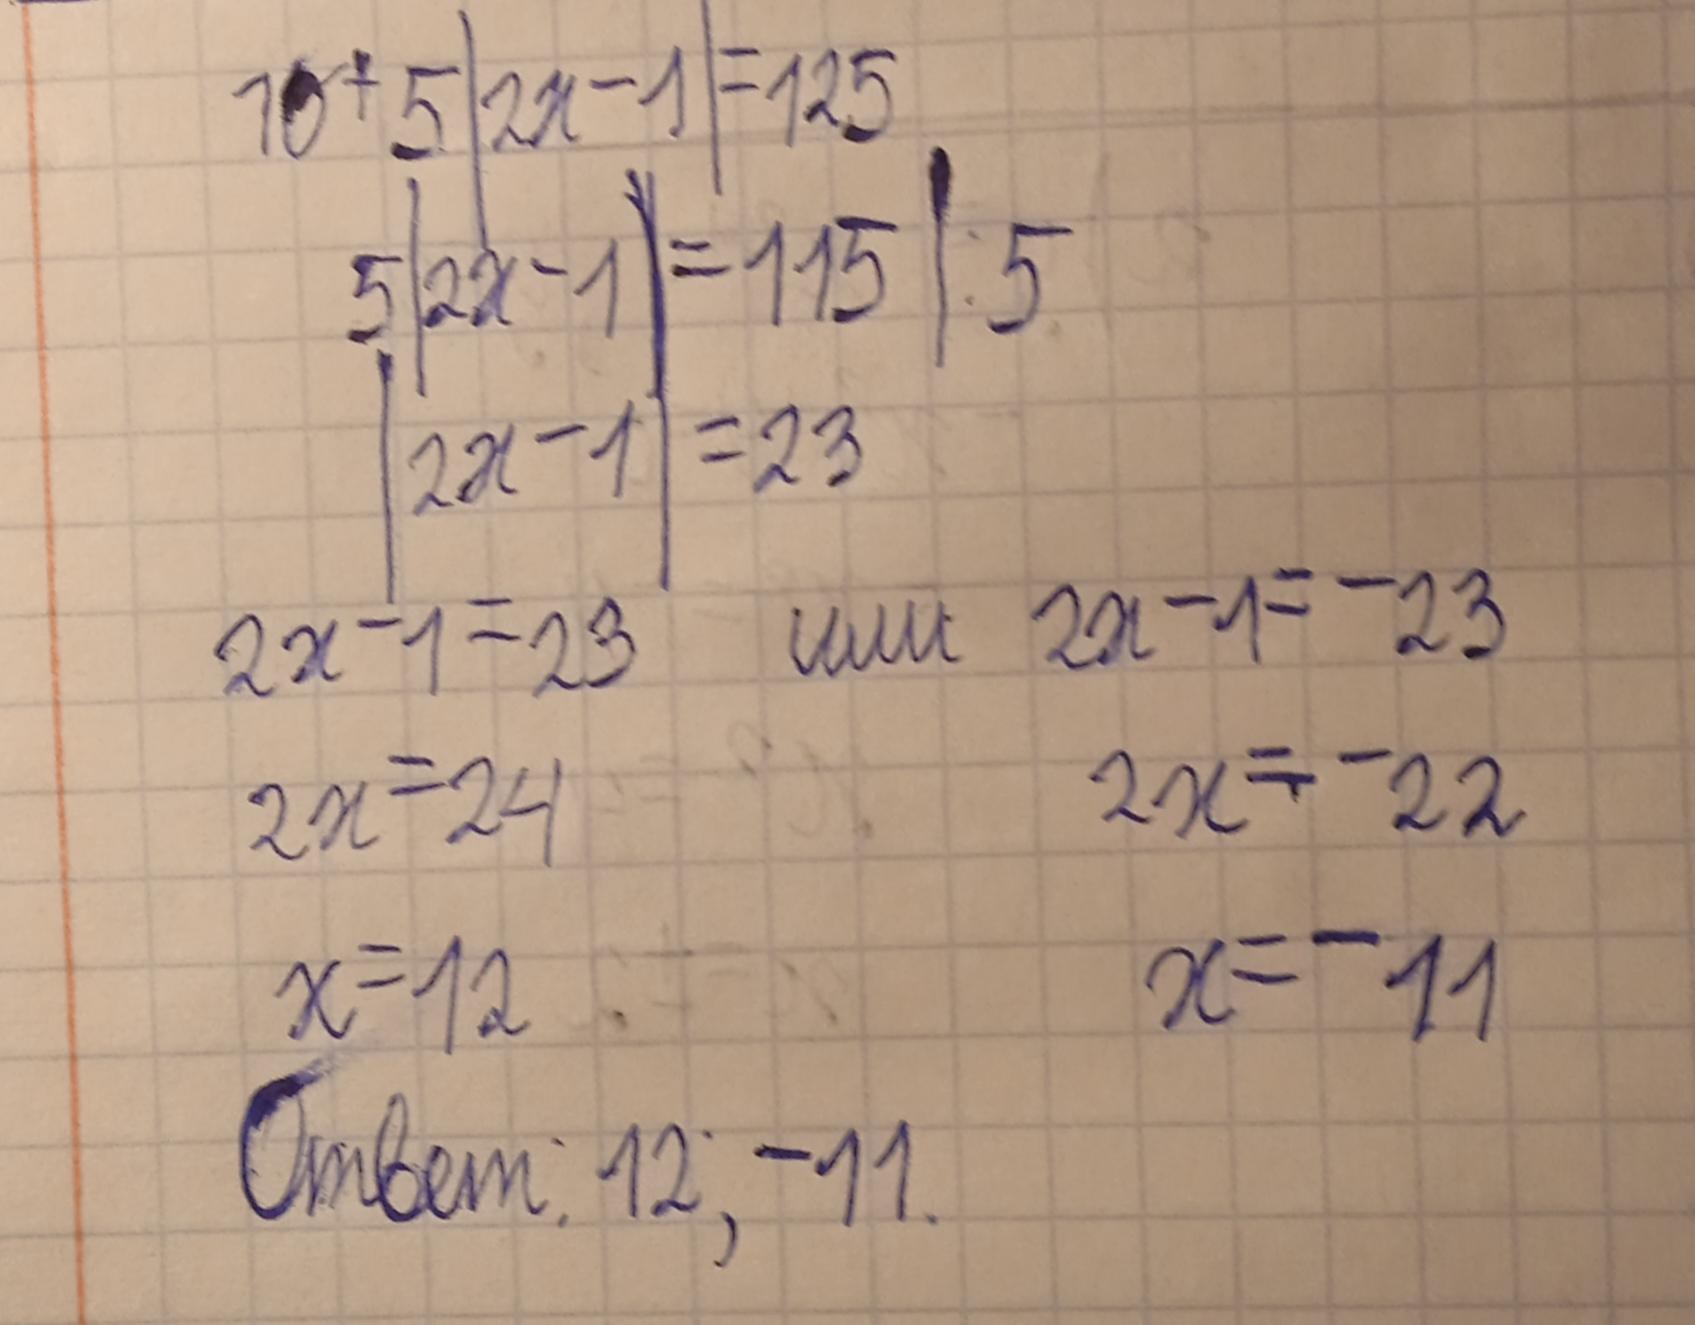 10+5|2x-1|=125
5|2x-1|=115 |:5
|2x-1|=23
2x-1=23 или 2x-1=-23
2x=24 2x=-22
x=12 x=-11
Ответ: 12; -11.